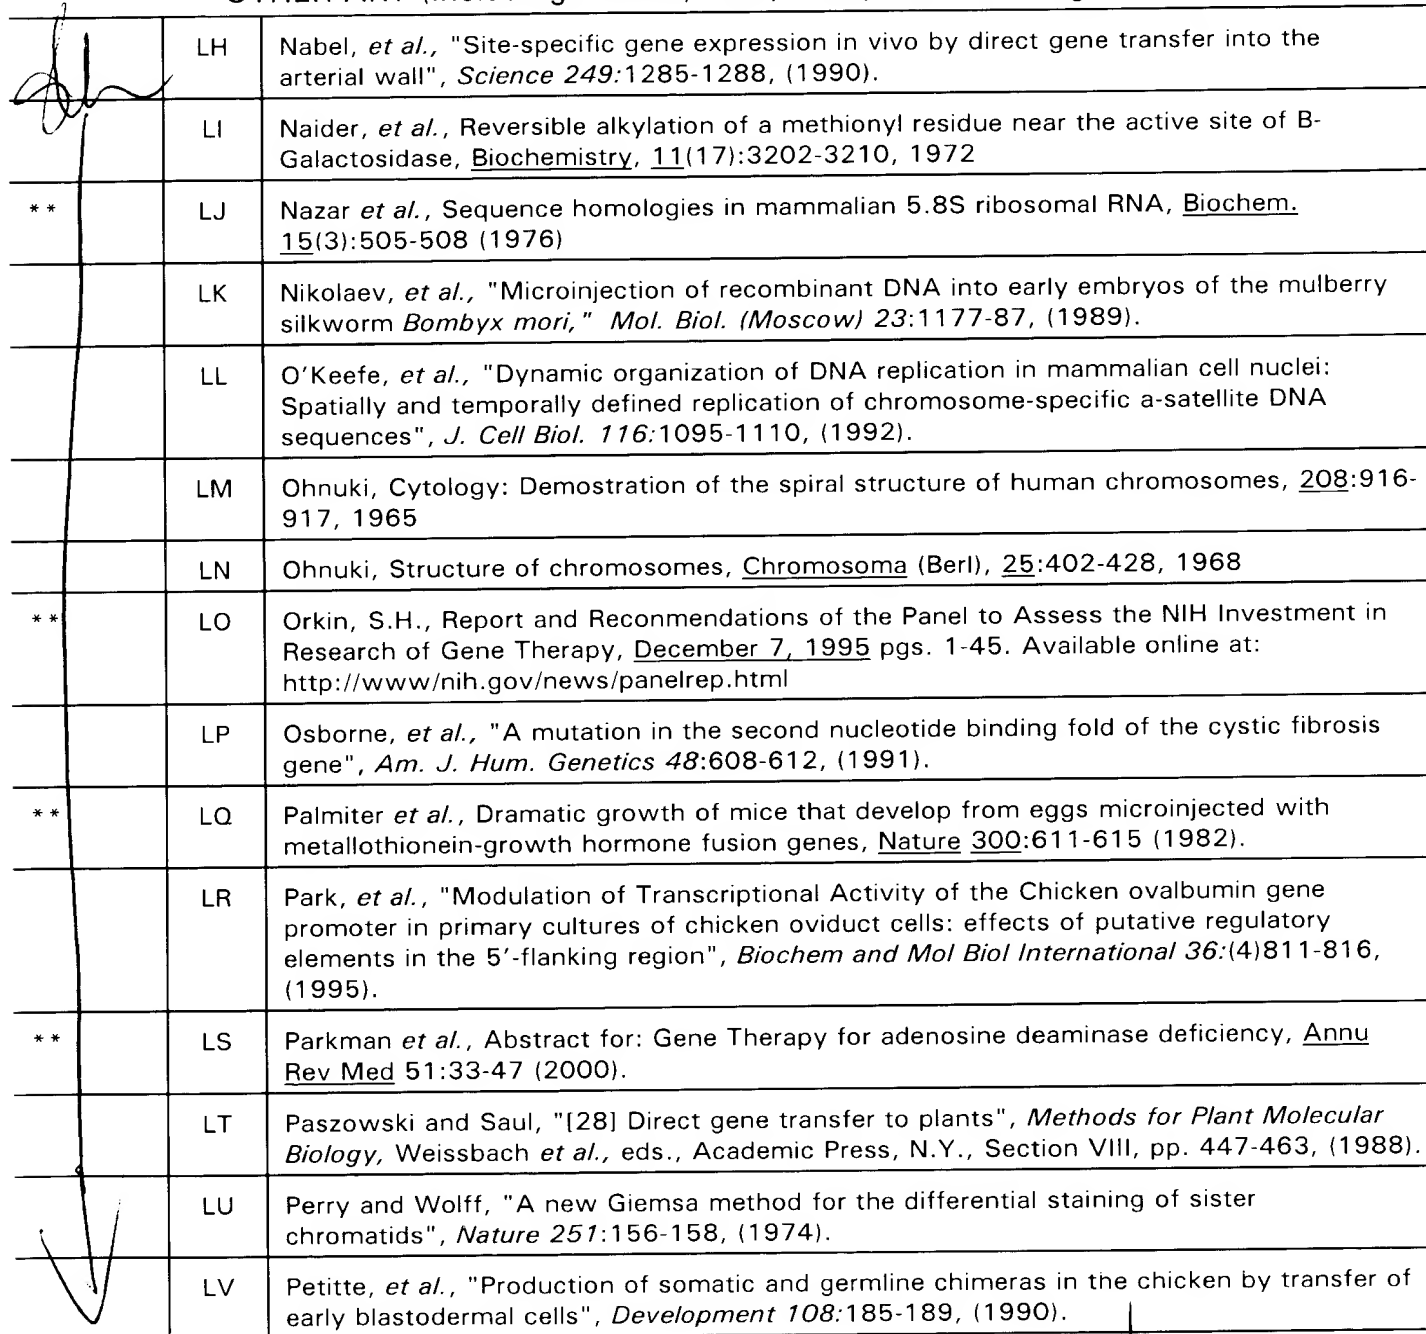 LH Nabel, et al., "Site-specific gene expression in vivo by direct gene transfer into the
arterial wall", Science 249:1285-1288, (1990).
LI Naider, et al., Reversible alkylation of a methionyl residue near the active site of B-
Galactosidase, Biochemistry, 11(17):3202-3210, 1972
** LJ Nazar et al., Sequence homologies in mammalian 5.8S ribosomal RNA, Biochem.
15(3):505-508 (1976)
LK Nikolaev, et al., "Microinjection of recombinant DNA into early embryos of the mulberry
silkworm Bombyx mori," Mol. Biol. (Moscow) 23:1177-87, (1989).
LL O'Keefe, et al., "Dynamic organization of DNA replication in mammalian cell nuclei:
Spatially and temporally defined replication of chromosome-specific a-satellite DNA
sequences", J. Cell Biol. 116:1095-1110, (1992).
LM Ohnuki, Cytology: Demostration of the spiral structure of human chromosomes, 208:916-
917, 1965
LN Ohnuki, Structure of chromosomes, Chromosoma (Berl), 25:402-428, 1968
** LO Orkin, S.H., Report and Reconmendations of the Panel to Assess the NIH Investment in
Research of Gene Therapy, December 7, 1995 pgs. 1-45. Available online at:
http://www/nih.gov/news/panelrep.html
LP Osborne, et al., "A mutation in the second nucleotide binding fold of the cystic fibrosis
gene", Am. J. Hum. Genetics 48:608-612, (1991).
** LQ Palmiter et al., Dramatic growth of mice that develop from eggs microinjected with
metallothionein-growth hormone fusion genes, Nature 300:611-615 (1982).
LR Park, et al., "Modulation of Transcriptional Activity of the Chicken ovalbumin gene
promoter in primary cultures of chicken oviduct cells: effects of putative regulatory
elements in the 5'-flanking region", Biochem and Mol Biol International 36:(4)811-816,
(1995).
** LS Parkman et al., Abstract for: Gene Therapy for adenosine deaminase deficiency, Annu
Rev Med 51:33-47 (2000).
LT Paszowski and Saul, "[28] Direct gene transfer to plants", Methods for Plant Molecular
Biology, Weissbach et al., eds., Academic Press, N.Y., Section VIII, pp. 447-463, (1988).
LU Perry and Wolff, "A new Giemsa method for the differential staining of sister
chromatids", Nature 251:156-158, (1974).
LV Petitte, et al., "Production of somatic and germline chimeras in the chicken by transfer of
early blastodermal cells", Development 108:185-189, (1990).